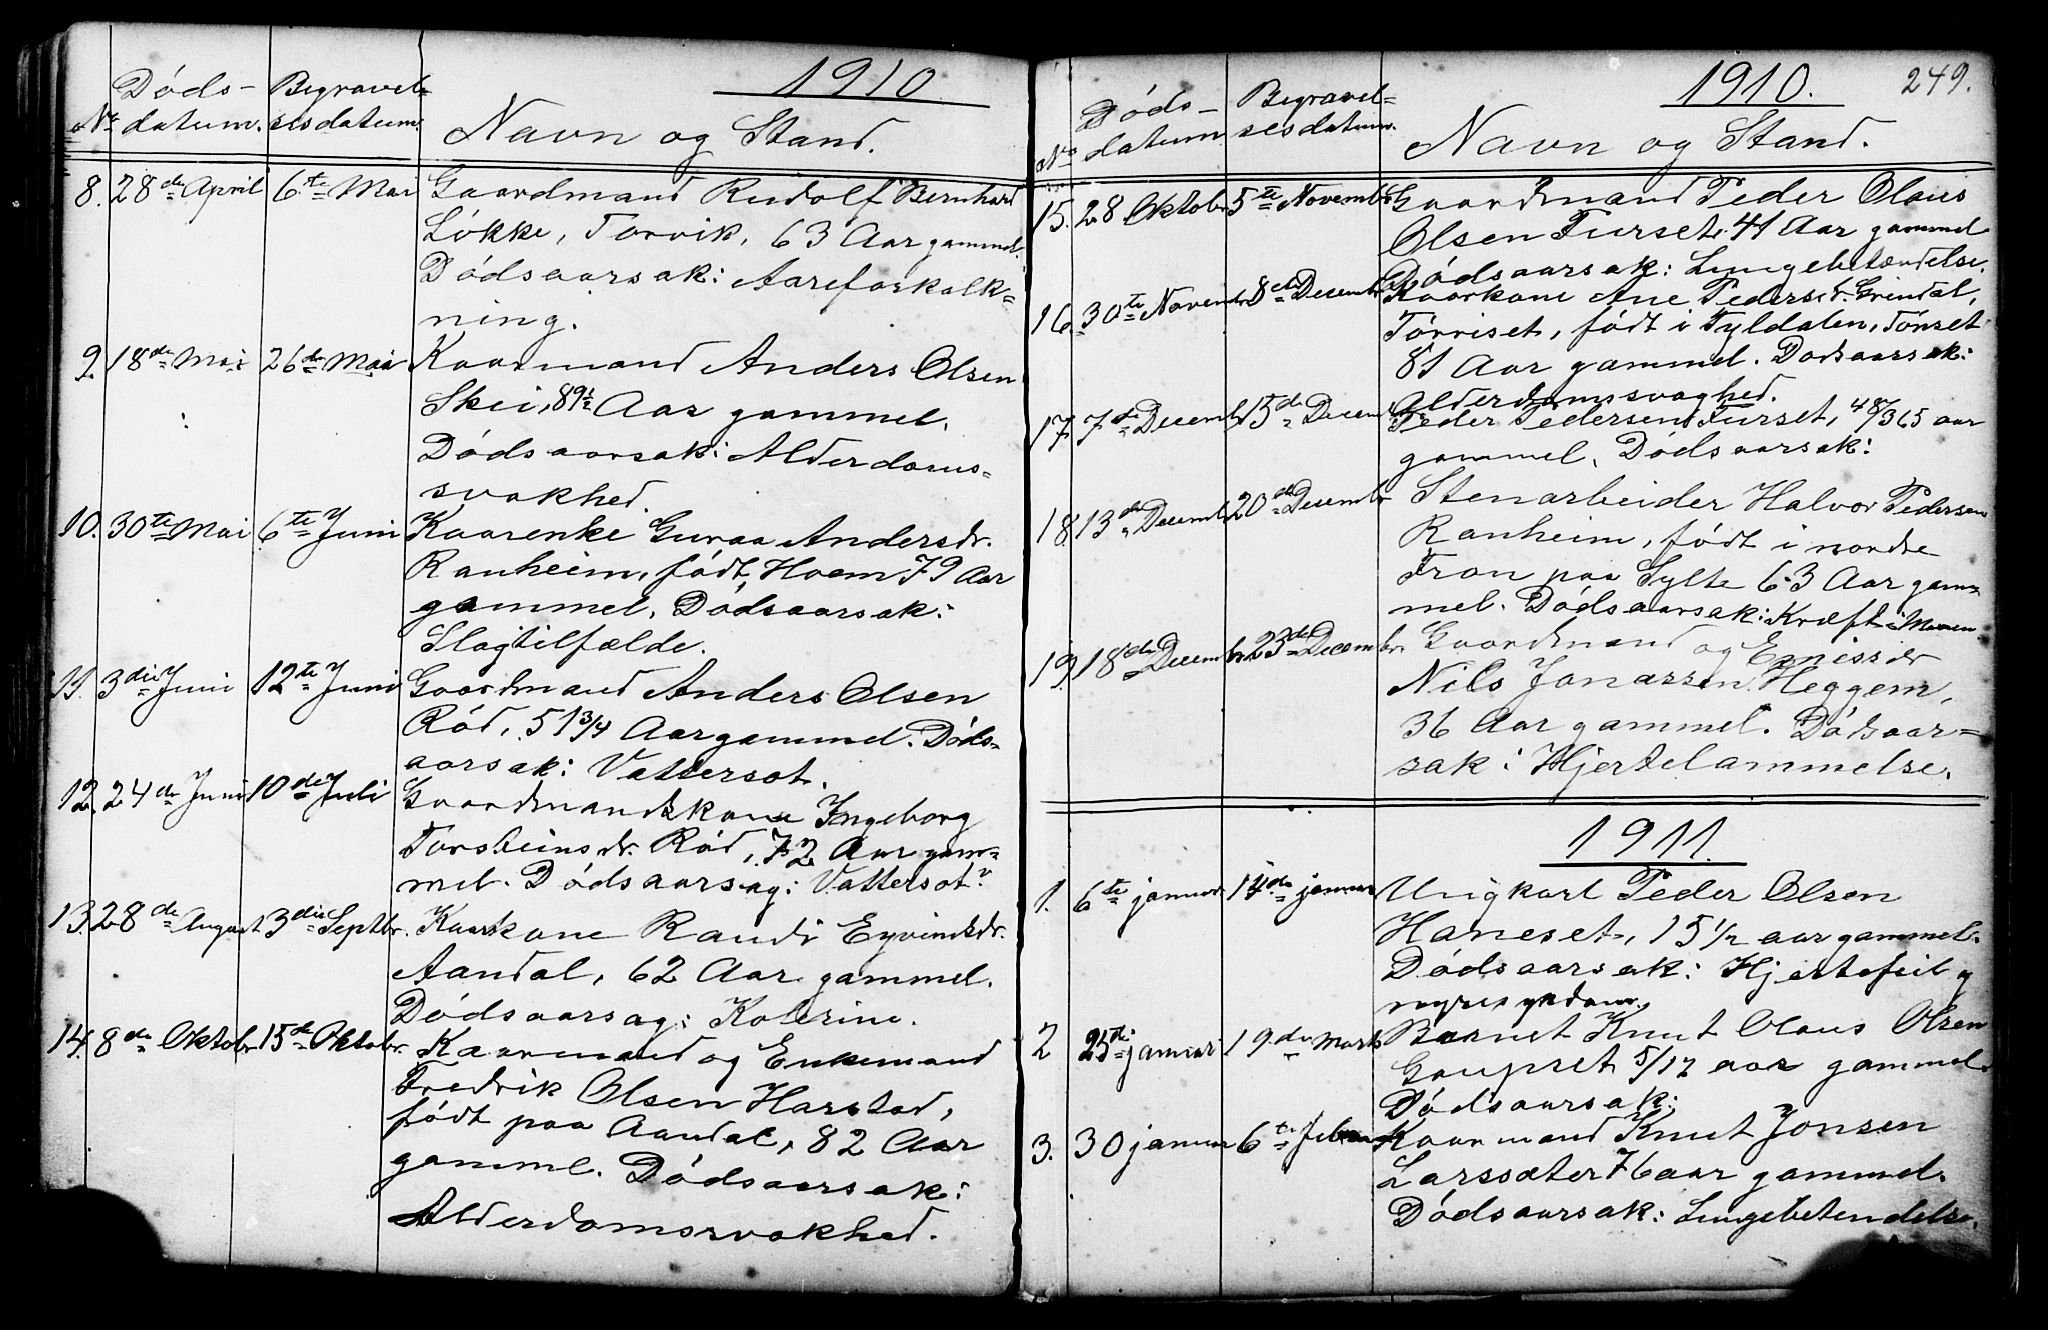 1910
Døds- Begravel=
No datum. sesdatum. Navn og Stand.
8. 28de April 6te Mai Gaardmand Rudolf Bernhard
Løkke, Torvik, 63 Aar gammel.
Dødsaarsak: Aareforkalk=
ning.
9. 18de Mai 26de Mai Kaarmand Anders Olsen
Skei, 89½ Aar gammel.
Dødsaarsak: Alderdoms=
svakhed.
10. 30te Mai 6te Juni Kaarenke Guraa Andersdr.
Ranheim, født Hoem 79 Aar
gammel. Dødsaarsak:
Slagtilfælde.
11. 3die Juni 12te Juni Gaardmand Anders Olsen
Rød, 51 3/4 Aar gammel. Døds=
aarsak: Vattersot.
12. 24de Juni 10de Juli Gaardmandskone Ingeborg
Torsteinsdr. Rød, 72 Aar gam=
mel. Dødsaarsag: Vattersot.
13. 28de August 13die Septbr. Kaarkone Randi Eyvindsdr.
Aandal, 62 Aar gammel.
Dødsaarsag: Kolerine.
14. 8de Oktobr 15de Oktobr. Kaarmand og Enkemand
Fredrik Olsen Harstad,
født paa Aandal, 82 Aar
gamml. Dødsaarsak:
Alderdomssvakhed.
1910. 249.
Døds- Begravel=
No datum sesdatum. Navn og Stand.
15. 28 Oktobr 5te Novembr Gaardmand Peder Olaus
Olsen Furset, 41 Aar gammel
Dødsaarsak: Lungebetændelse.
16. 30te Novembr 8de Decembr Kaarkone Ane Pedersdr. Grindal,
Tørriset, født i Tyldalen, Tønset
81 Aar gammel. Dødsaarsak:
Alderdomssvaghed.
17. 7de Decembr 15de Decembr Peder Pedersen Furset, 48/365 aar
gammel. Dødsaarsak:
18. 13de Decembr 20de Decembr Stenarbeider Halvor Pedersen
Ranheim, født i nordre
Fron paa Sylte 63 Aar gam=
mel. Dødsaarsak: Kræft i Maven
19. 18de Decembr 23de Decembr. Gaardmand og
Nils Jonassen Heggem,
36 Aar gammel. Dødsaar=
sak: Hjertelammelse.
1911.
1. 6te januar 14de januar Ungkarl Peder Olsen
Haneset, 15 1/2 aar gammel.
Dødsaarsak: Hjertefeil og
nyresygdom.
2 25de januar 19de Marts Barnet Knut Olaus Olsen
Gaupset 5/12 aar gammel.
Dødsaarsak:
3. 30 januar 6te Kaarmand Knut Jonsen
Larssæter 76 aar gammel.
Dødsaarsak: Lungebetendelse.